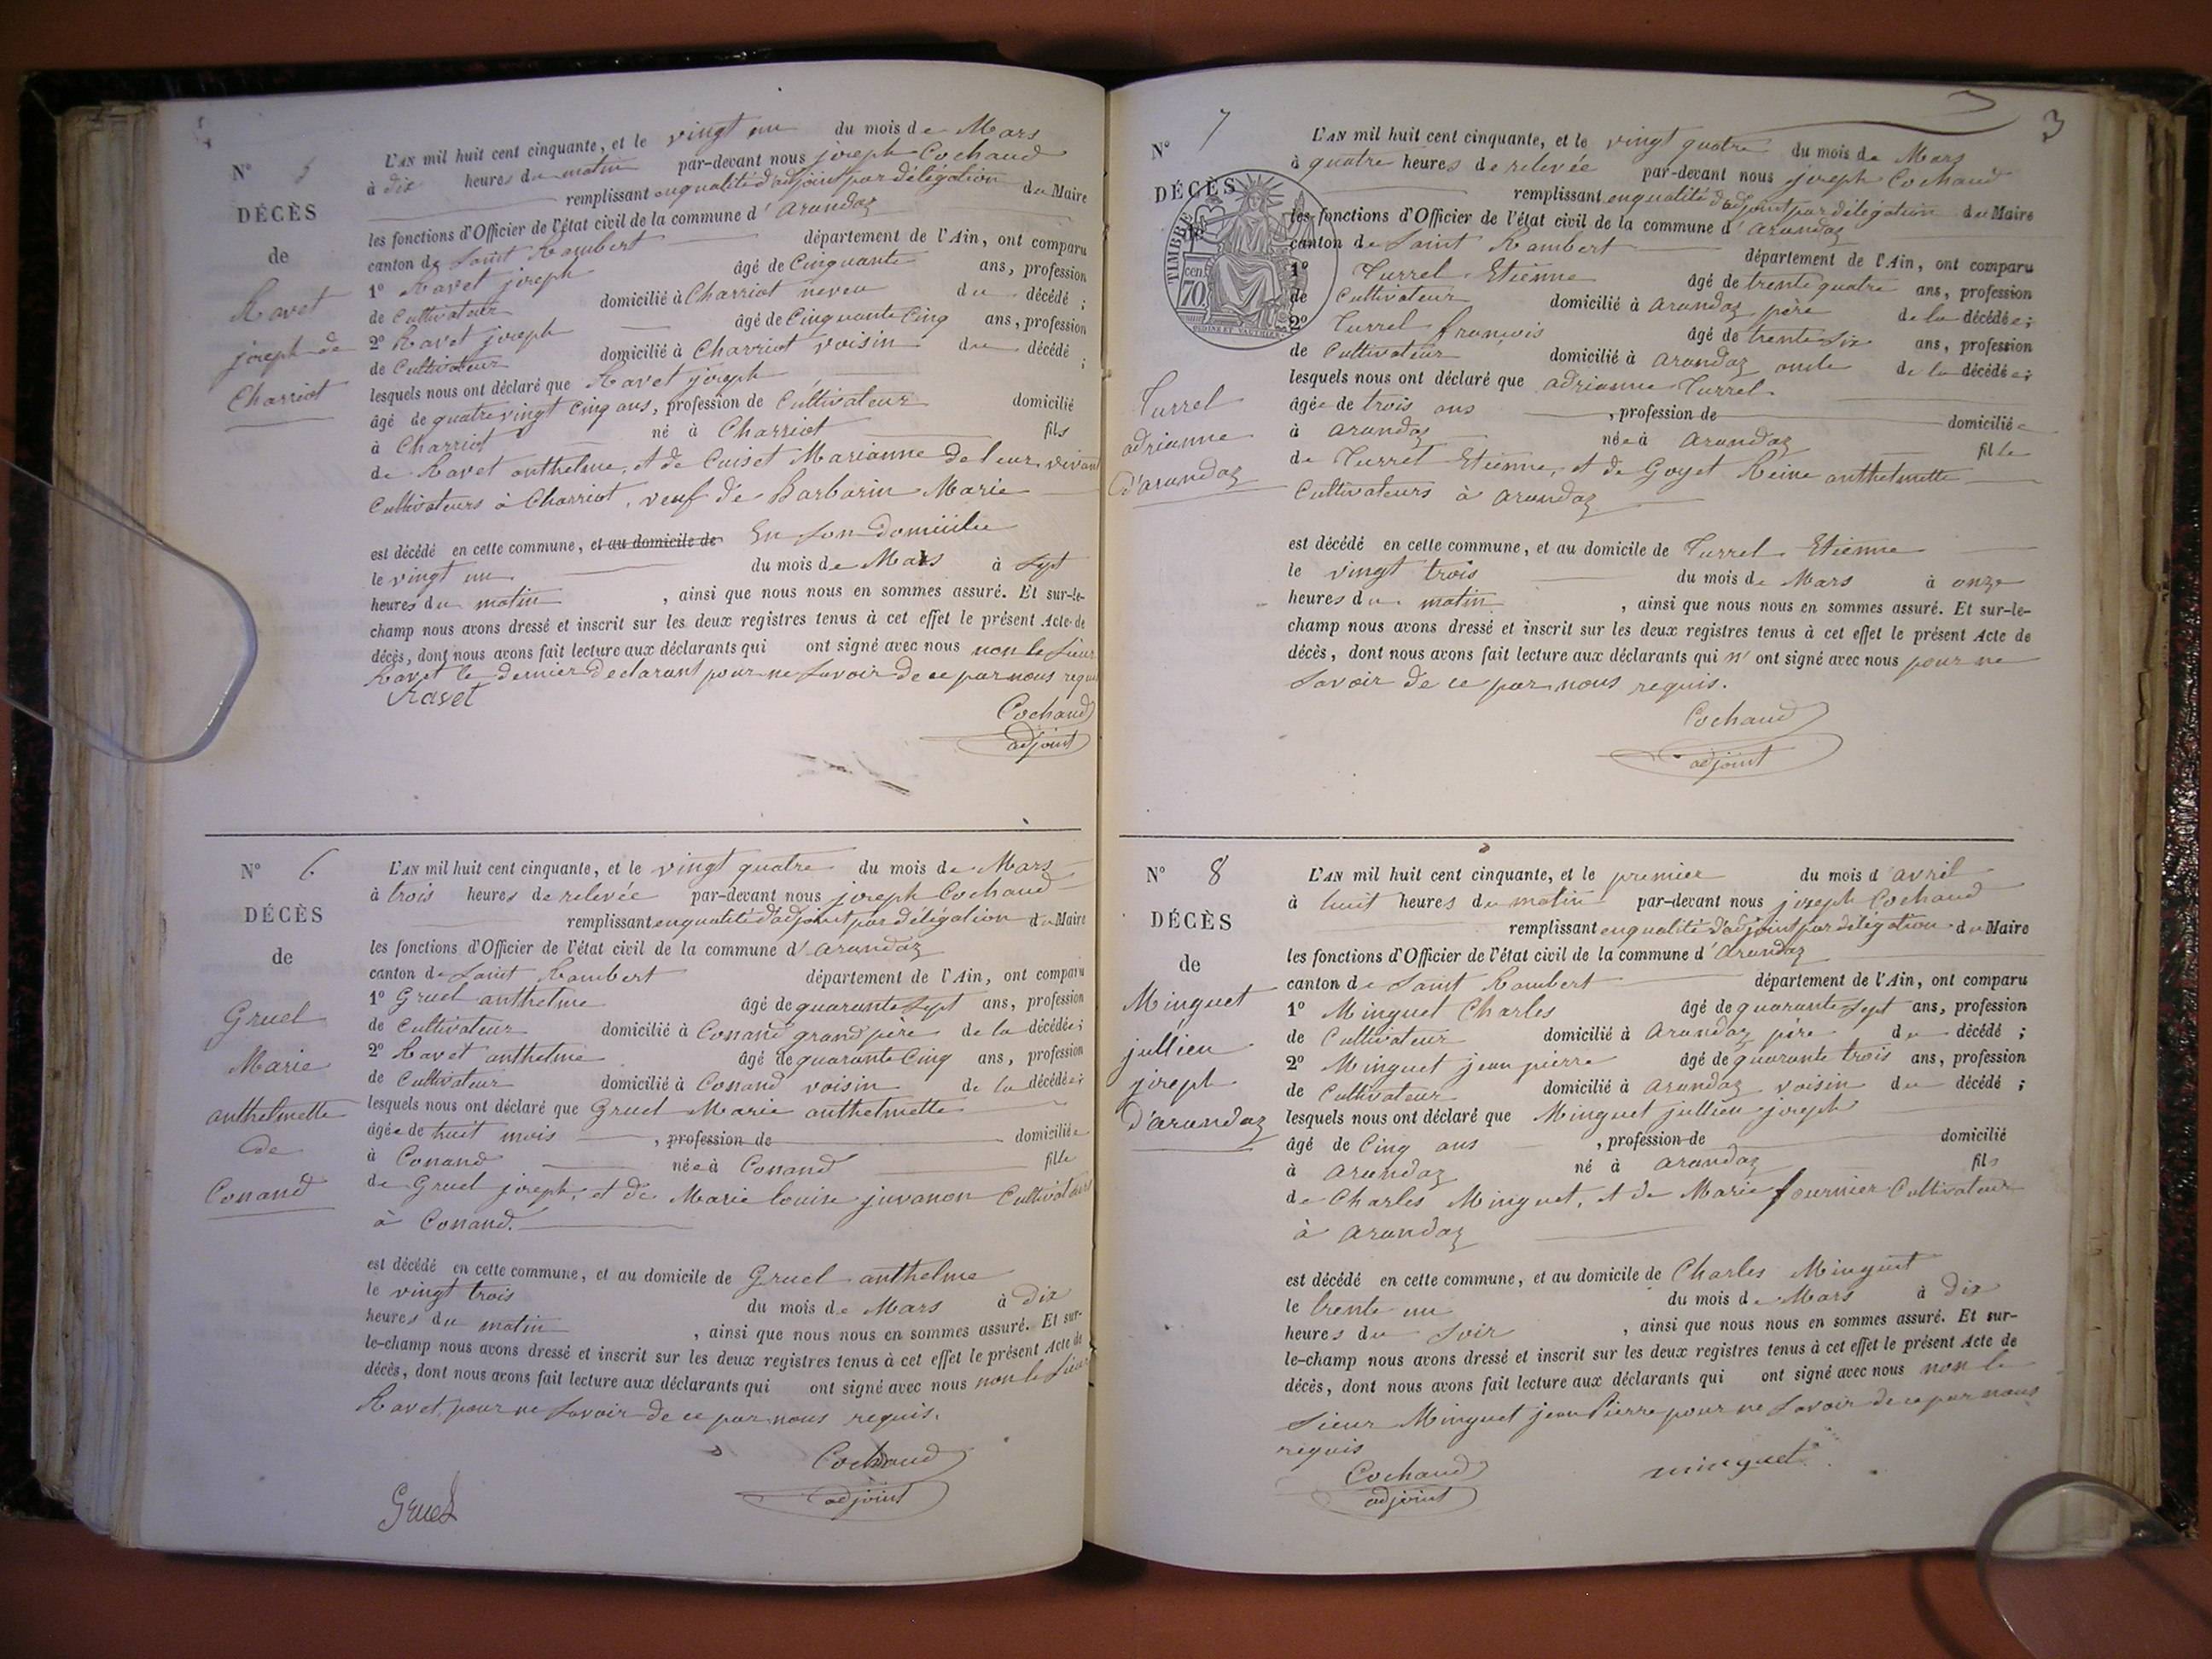 N° 5
DÉCÈS
de
Ravet
joseph de
Charriot
L'AN mil huit cent cinquante, et le vingt un du mois de Mars
à dix heures du matin par-devant nous joseph Cochaud
remplissant en qualité d'adjoint par délégation du Maire
les fonctions d'Officier de l'état civil de la commune d'arandaz
canton de Saint Rambert département de l'Ain, ont comparu
1° Ravet joseph âgé de Cinquante ans, profession
de Cultivateur domicilié à Charriot neveu du décédé ;
2° Ravet joseph âgé de Cinquante Cinq ans, profession
de Cultivateur domicilié à Charriot voisin du décédé ;
lesquels nous ont déclaré que Ravet joseph
âgé de quatre vingt cinq ans, profession de Cultivateur domicilié
à Charriot né à Charriot fils
de Ravet anthelme, et de Cuiset Marianne de leur vivant
Cultivateurs à Charriot, veuf de Barbarin Marie
est décédé en cette commune, et au domicile de En son Domicilie
le vingt un du mois de Mars à sept
heures du matin, ainsi que nous nous en sommes assuré. Et sur-le-
champ nous avons dressé et inscrit sur les deux registres tenus à cet effet le présent Acte de
décès, dont nous avons fait lecture aux déclarants qui ont signé avec nous non le Sieur
Ravet le dernier Declarant pour ne Savoir de ce par nous requis
Ravet
Cochaud
adjoint
N° 6
DÉCÈS
de
Gruel
Marie
anthelmette
de
Conand
L'AN mil huit cent cinquante, et le vingt quatre du mois de Mars
à trois heures de relevée par-devant nous joseph Cochaud
remplissant en qualité d'adjoint par délégation du Maire
les fonctions d'Officier de l'état civil de la commune d'arandaz
canton de Saint Rambert département de l'Ain, ont comparu
1° Gruel anthelme âgé de quarante sept ans, profession
de Cultivateur domicilié à Conand grand père de la décédée ;
2° Ravet anthelme âgé de quarante Cinq ans, profession
de Cultivateur domicilié à Conand voisin de la décédée ;
lesquels nous ont déclaré que Gruel Marie anthelmette
âgée de huit mois, profession de domiciliée
à Conand née à Conand fille
de Gruel joseph, et de Marie louise juvanon Cultivateurs
à Conand.
est décédé en cette commune, et au domicile de Gruel anthelme
le vingt trois du mois de Mars à dix
heures du matin, ainsi que nous nous en sommes assuré. Et sur-
le-champ nous avons dressé et inscrit sur les deux registres tenus à cet effet le présent Acte de
décès, dont nous avons fait lecture aux déclarants qui ont signé avec nous non le Sieur
Ravet, pour ne Savoir de ce par nous requis.
Cochaud
adjoint
Gruel
3
N° 7
DÉCÈS
de
TIMBRE
cen 70
Turrel
adrianne
d'arandaz
L'AN mil huit cent cinquante, et le vingt quatre du mois de Mars
à quatre heures de relevée par-devant nous joseph Cochaud
remplissant en qualité d'adjoint par délégation du Maire
les fonctions d'Officier de l'état civil de la commune d'arandaz
canton de Saint Rambert département de l'Ain, ont comparu
1° Turrel Etienne âgé de trente quatre ans, profession
de Cultivateur domicilié à arandaz père de la décédée ;
2° Turrel francois âgé de trente six ans, profession
de Cultivateur domicilié à arandaz oncle de la décédée ;
lesquels nous ont déclaré que adrianne Turrel
âgée de trois ans, profession de domiciliée
à arandaz née à arandaz fille
de Turrel Etienne, et de Goyet Reine anthelmette
Cultivateurs à arandaz
est décédé en cette commune, et au domicile de Turrel Etienne
le vingt trois du mois de Mars à onze
heures du matin, ainsi que nous nous en sommes assuré. Et sur-le-
champ nous avons dressé et inscrit sur les deux registres tenus à cet effet le présent Acte de
décès, dont nous avons fait lecture aux déclarants qui n'ont signé avec nous pour ne
Savoir de ce par nous requis.
Cochaud
adjoint
N° 8
DÉCÈS
de
Minguet
jullien
joseph
d'arandaz
L'AN mil huit cent cinquante, et le premier du mois d'avril
à huit heures du matin par-devant nous joseph Cochaud
remplissant en qualité d'adjoint par délégation du Maire
les fonctions d'Officier de l'état civil de la commune d'arandaz
canton de Saint Rambert département de l'Ain, ont comparu
1° Minguet Charles âgé de quarante sept ans, profession
de Cultivateur domicilié à arandaz père du décédé ;
2° Minguet jean pierre âgé de quarante trois ans, profession
de Cultivateur domicilié à arandaz voisin du décédé ;
lesquels nous ont déclaré que Minguet jullien joseph
âgé de Cinq ans, profession de domicilié
à arandaz né à arandaz fils
de Charles Minguet, et de Marie fournier Cultivateurs
à arandaz
est décédé en cette commune, et au domicile de Charles Minguet
le trente un du mois de Mars à dix
heures du Soir, ainsi que nous nous en sommes assuré. Et sur-
le-champ nous avons dressé et inscrit sur les deux registres tenus à cet effet le présent Acte de
décès, dont nous avons fait lecture aux déclarants qui ont signé avec nous non le
Sieur Minguet jean Pierre pour ne Savoir de ce par nous
requis
Cochaud
adjoint
minguet